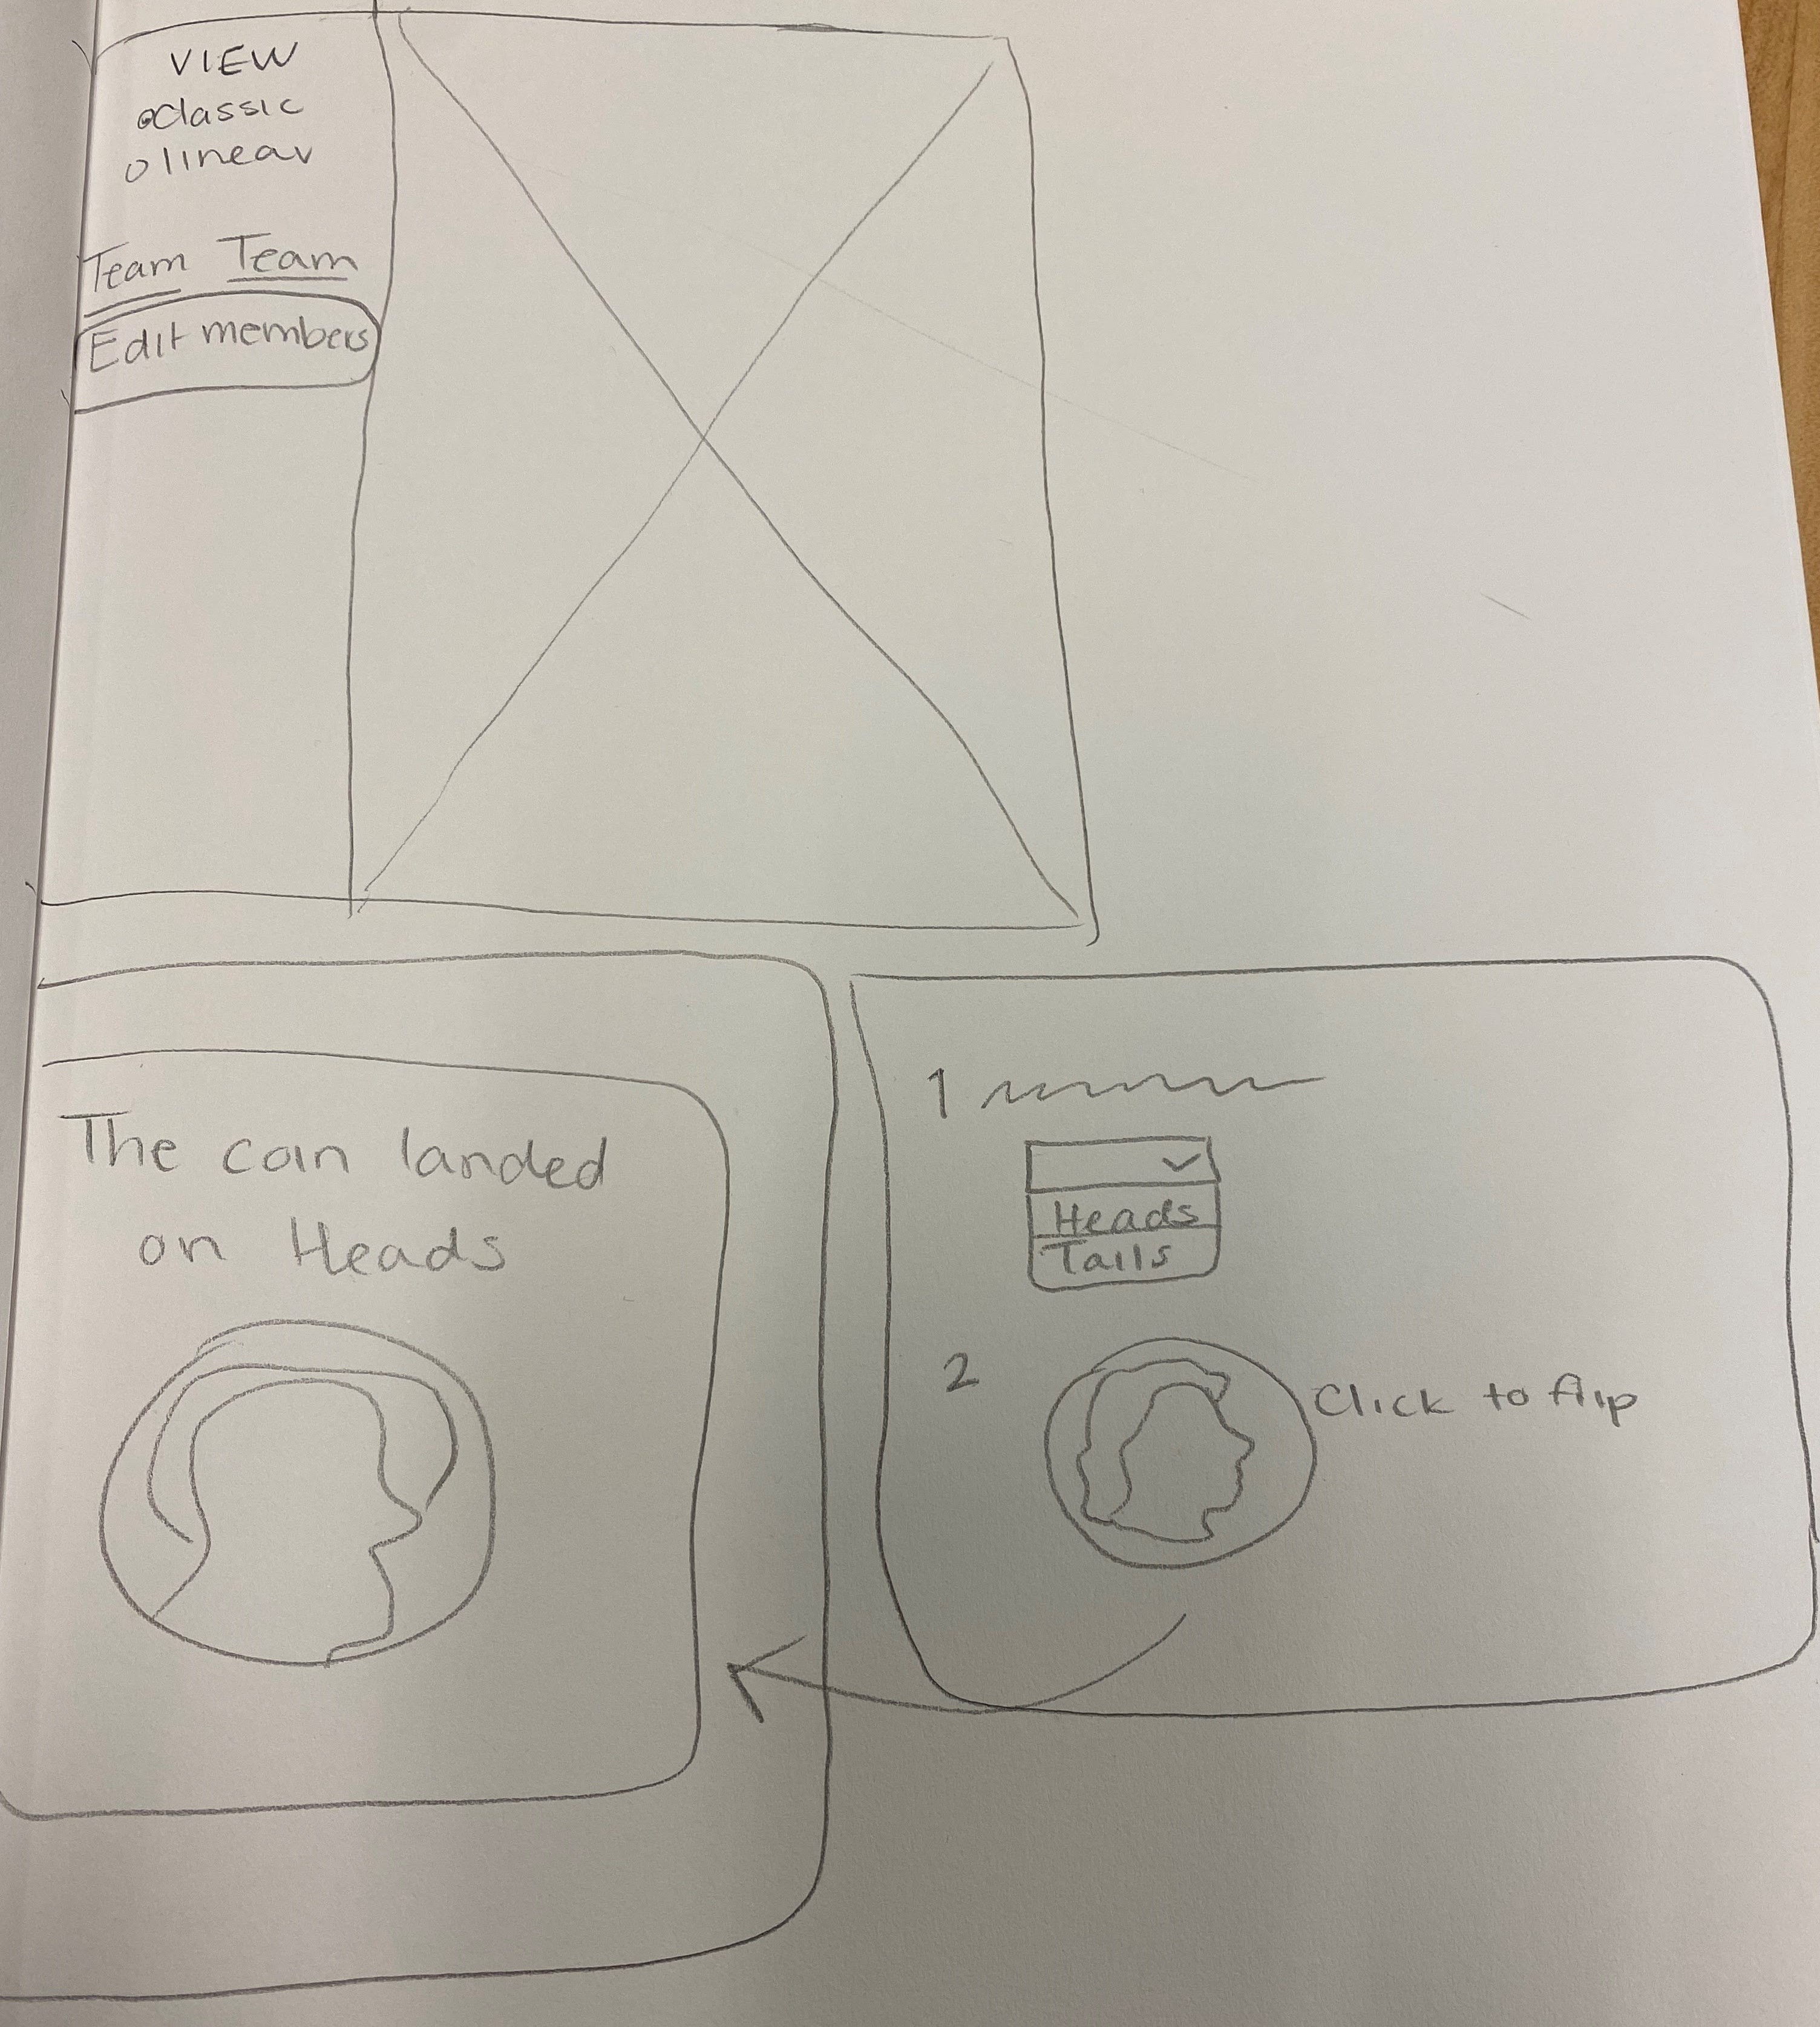 VIEW
classic
linear
Team Team
Edit members
The coin landed
on Heads
1
Heads
Tails
2
Click to flip